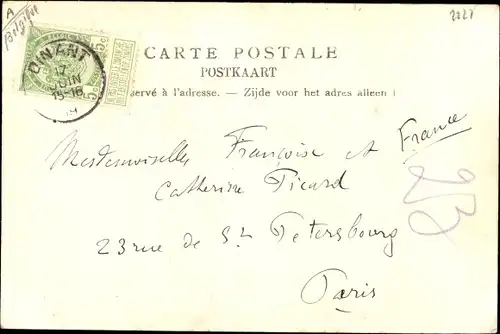 A
Belgique
2827
DINANT
17
JUIN
15-16
CARTE POSTALE
POSTKAART
servé à l'adresse. — Zijde voor het adres alleen
France
Mesdemoiselles Françoise et
Catherine Picard
23 rue de St Petersbourg
Paris